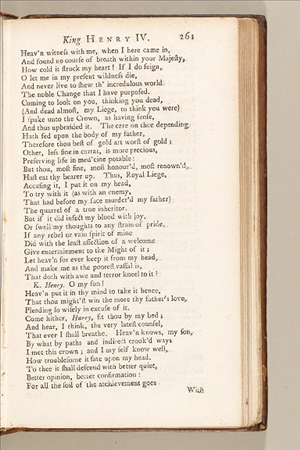 King HENRY IV. 261
Heav'n witness with me, when I here came in,
And found no course of breath within your Majesty,
How cold it struck my heart! If I do feign,
O let me in my present wildness die,
And never live to shew th' incredulous world
The noble Change that I have purposed.
Coming to look on you, thinking you dead,
(And dead almost, my Liege, to think you were)
I spake unto the Crown, as having sense,
And thus upbraided it. The care on thee depending
Hath fed upon the body of my father,
Therefore thou best of gold art worst of gold;
Other, less fine in carrat, is more precious,
Preserving life in med'cine potable:
But thou, most fine, most honour'd, most renown'd,
Hast eat thy bearer up. Thus, Royal Liege,
Accusing it, I put it on my head,
To try with it (as with an enemy,
That had before my face murder'd my father)
The quarrel of a true inheritor.
But if it did infect my blood with joy,
Or swell my thoughts to any strain of pride,
If any rebel or vain spirit of mine
Did with the least affection of a welcome
Give entertainment to the Might of it;
Let heav'n for ever keep it from my head,
And make me as the poorest vassal is,
That doth with awe and terror kneel to it!
K. Henry. O my son!
Heav'n put it in thy mind to take it hence,
That thou might'st win the more thy father's love,
Pleading so wisely in excuse of it.
Come hither, Harry, sit thou by my bed;
And hear, I think, the very latest counsel,
That ever I shall breathe. Heav'n knows, my son,
By what by paths and indirect crook'd ways
I met this crown; and I my self know well,
How troublesome it sate upon my head.
To thee it shall descend with better quiet,
Better opinion, better confirmation:
For all the soil of the atchievement goes
With